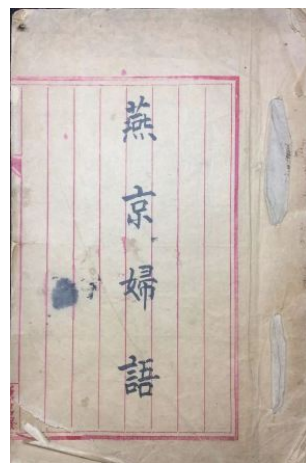 燕京婦語